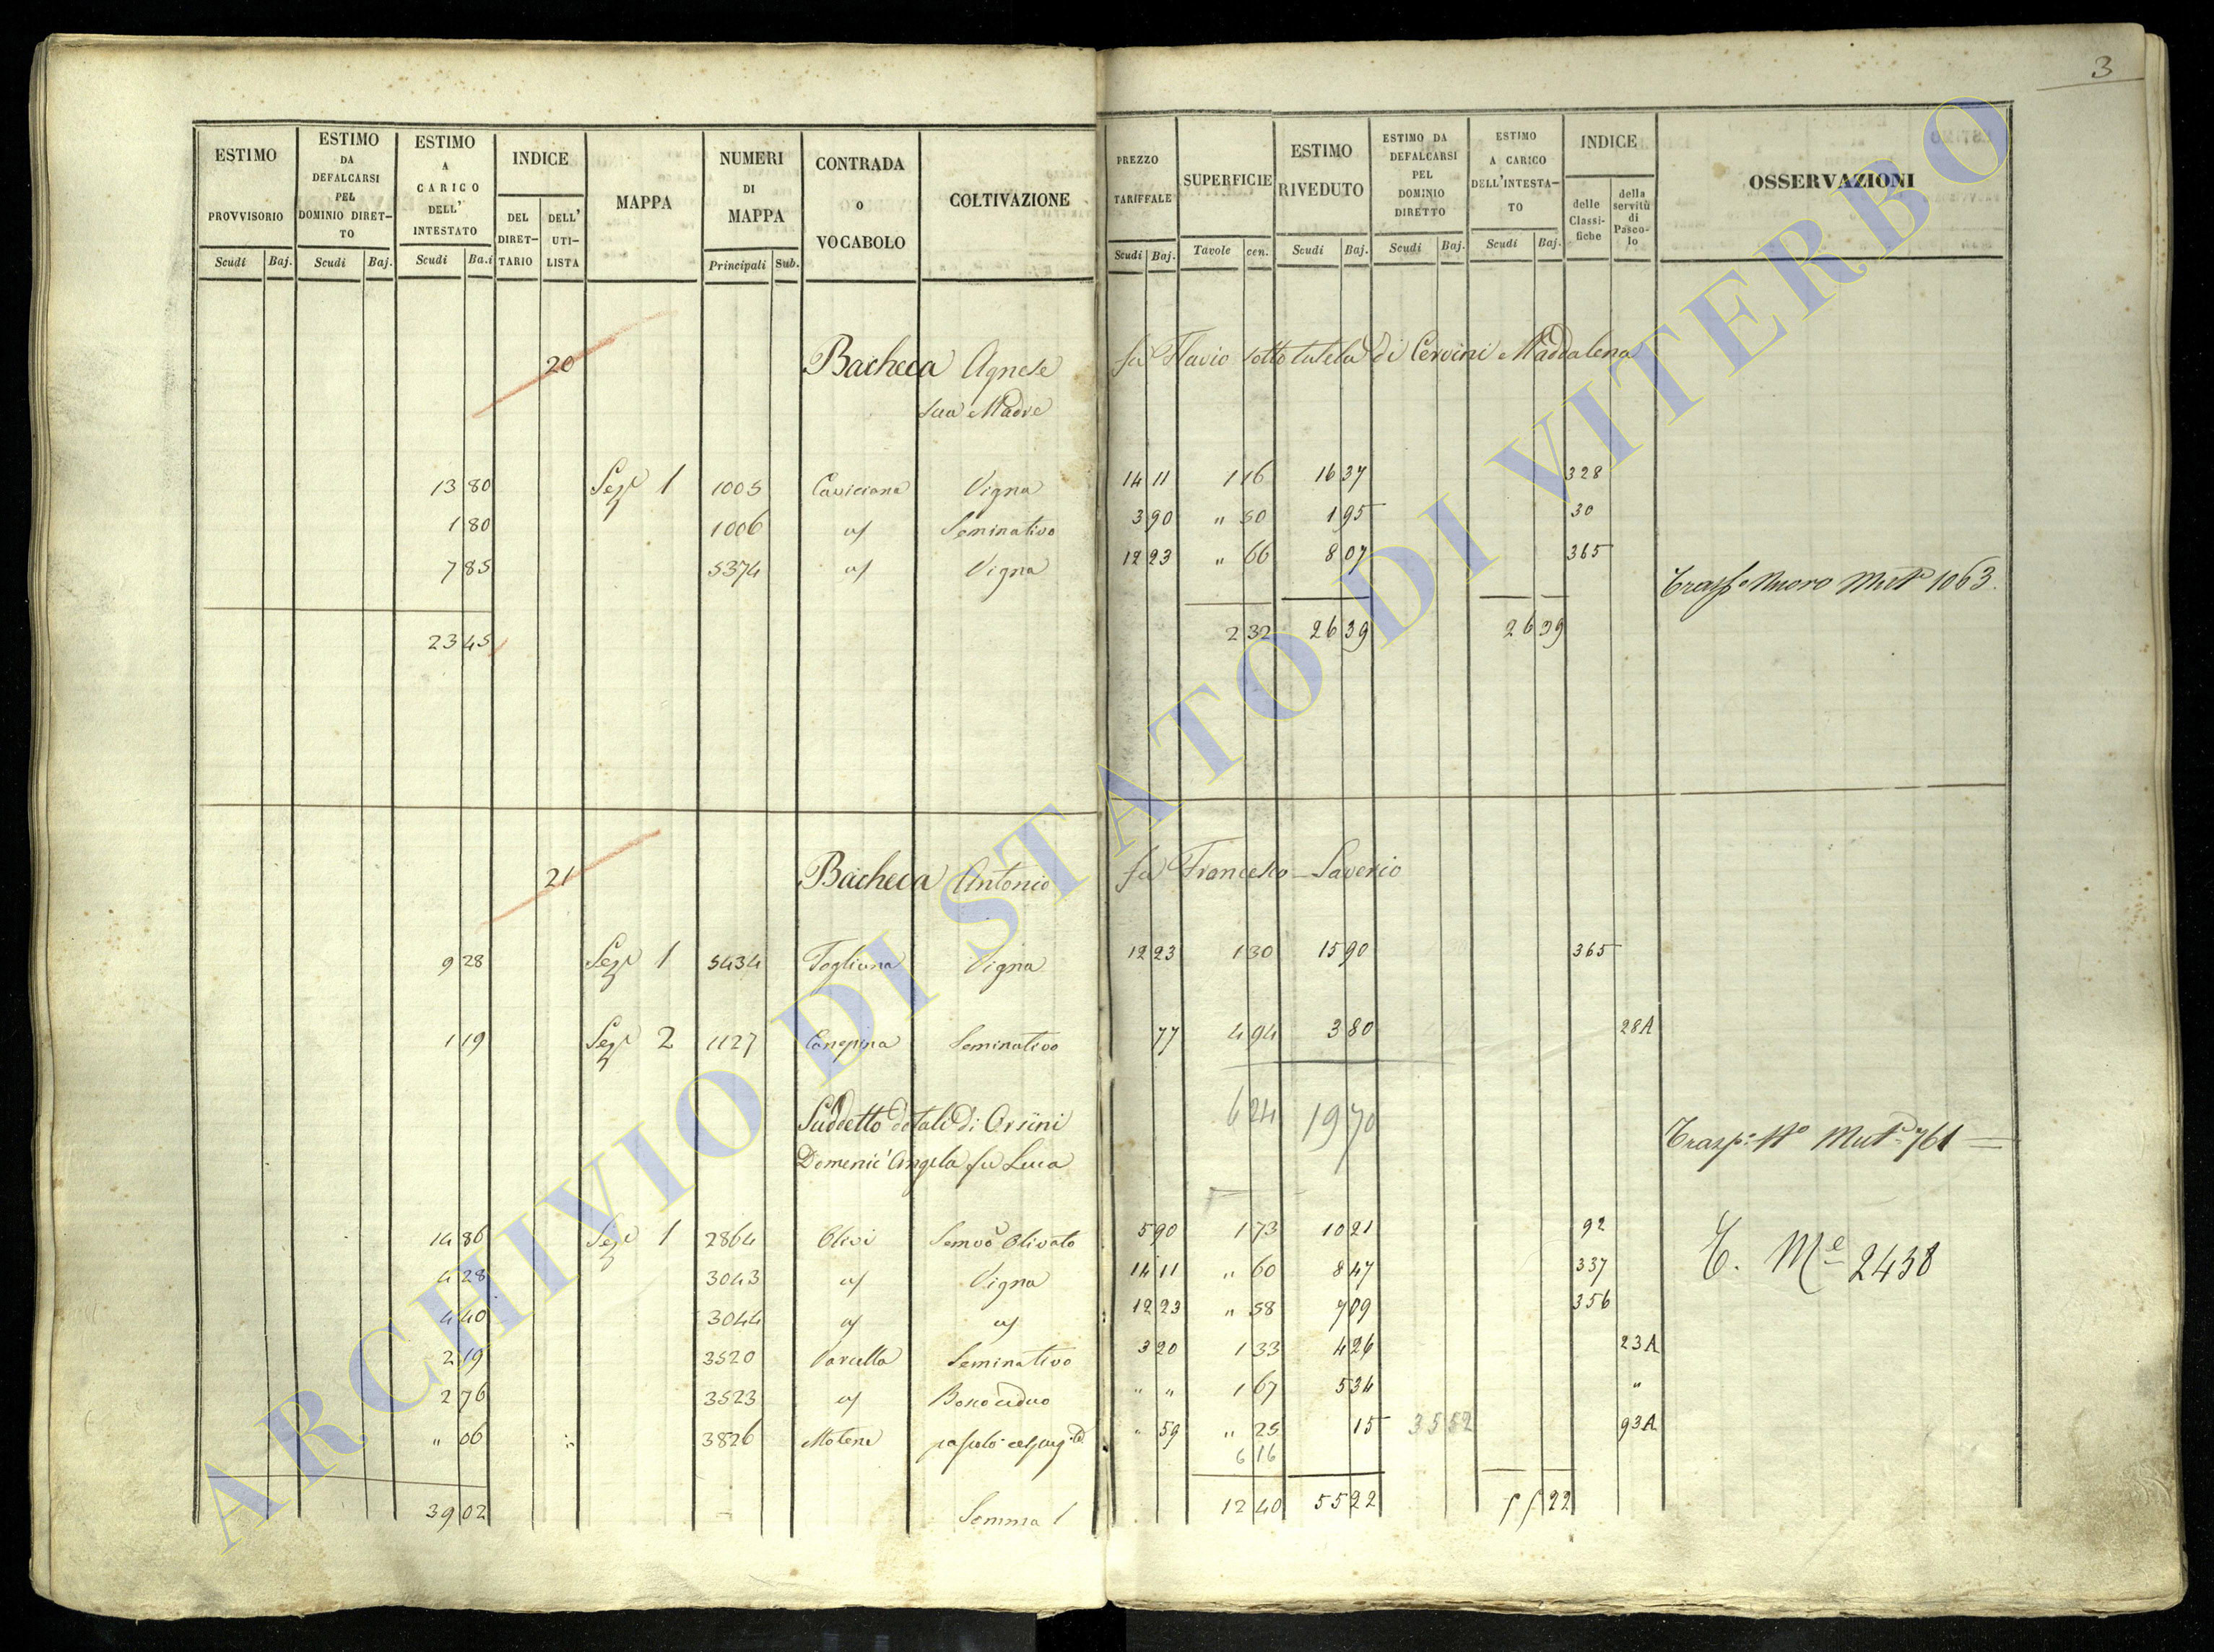 3
ESTIMO PROVVISORIO Scudi Baj.
ESTIMO DA DEFALCARSI PEL DOMINIO DIRETTO Scudi Baj.
ESTIMO A CARICO DELL' INTESTATO Scudi Ba.i
INDICE DEL DIRETTARIO DELL' UTILISTA
MAPPA
NUMERI DI MAPPA Principali Sub.
CONTRADA o VOCABOLO
COLTIVAZIONE
PREZZO TARIFFALE Scudi Baj.
SUPERFICIE Tavole cen.
ESTIMO RIVEDUTO Scudi Baj.
ESTIMO DA DEFALCARSI PEL DOMINIO DIRETTO Scudi Baj.
ESTIMO A CARICO DELL'INTESTATO Scudi Baj.
INDICE delle Classifiche della servitù di Pascolo
OSSERVAZIONI
20 Bacheca Agnese fu Flavio sotto tutela di Cervini Maddalena
sua Madre
13 80 Sez.e 1 1005 Caviciana Vigna 14 11 1 16 16 37 328
1 80 1006 a/ Seminativo 3 90 " 50 1 95 30
7 85 5374 a/ Vigna 12 23 " 66 8 07 365
1063
23 45 2 32 26 39 26 39
21 Bacheca Antonio fu Francesco Saverio
9 28 Sez.e 1 5434 Fogliana Vigna 12 23 1 30 15 90 365
1 19 Sez.e 2 1127 Canepina Seminativo 77 4 94 3 80 28A
6 24 19 70
Suddetto dotali di Orsini
Domenic' Angela fu Luca
761
14 86 Sez.e 1 2864 Olivi Semvo Olivato 5 90 1 73 10 21 92
T. M.e 2438
4 28 3043 a/ Vigna 14 11 " 60 8 47 337
4 40 3044 a/ a/ 12 23 " 58 7 09 356
2 19 3520 Varcella Seminativo 3 20 1 33 4 26 23A
2 76 3523 a/ Bosco ceduo " " 1 67 5 34 "
" 06 3826 Matene " 59 " 25 15 35 52 93A
6 16
39 02 Somma 1 12 40 55 22 55 22
ARCHIVIO DI STATO DI VITERBO